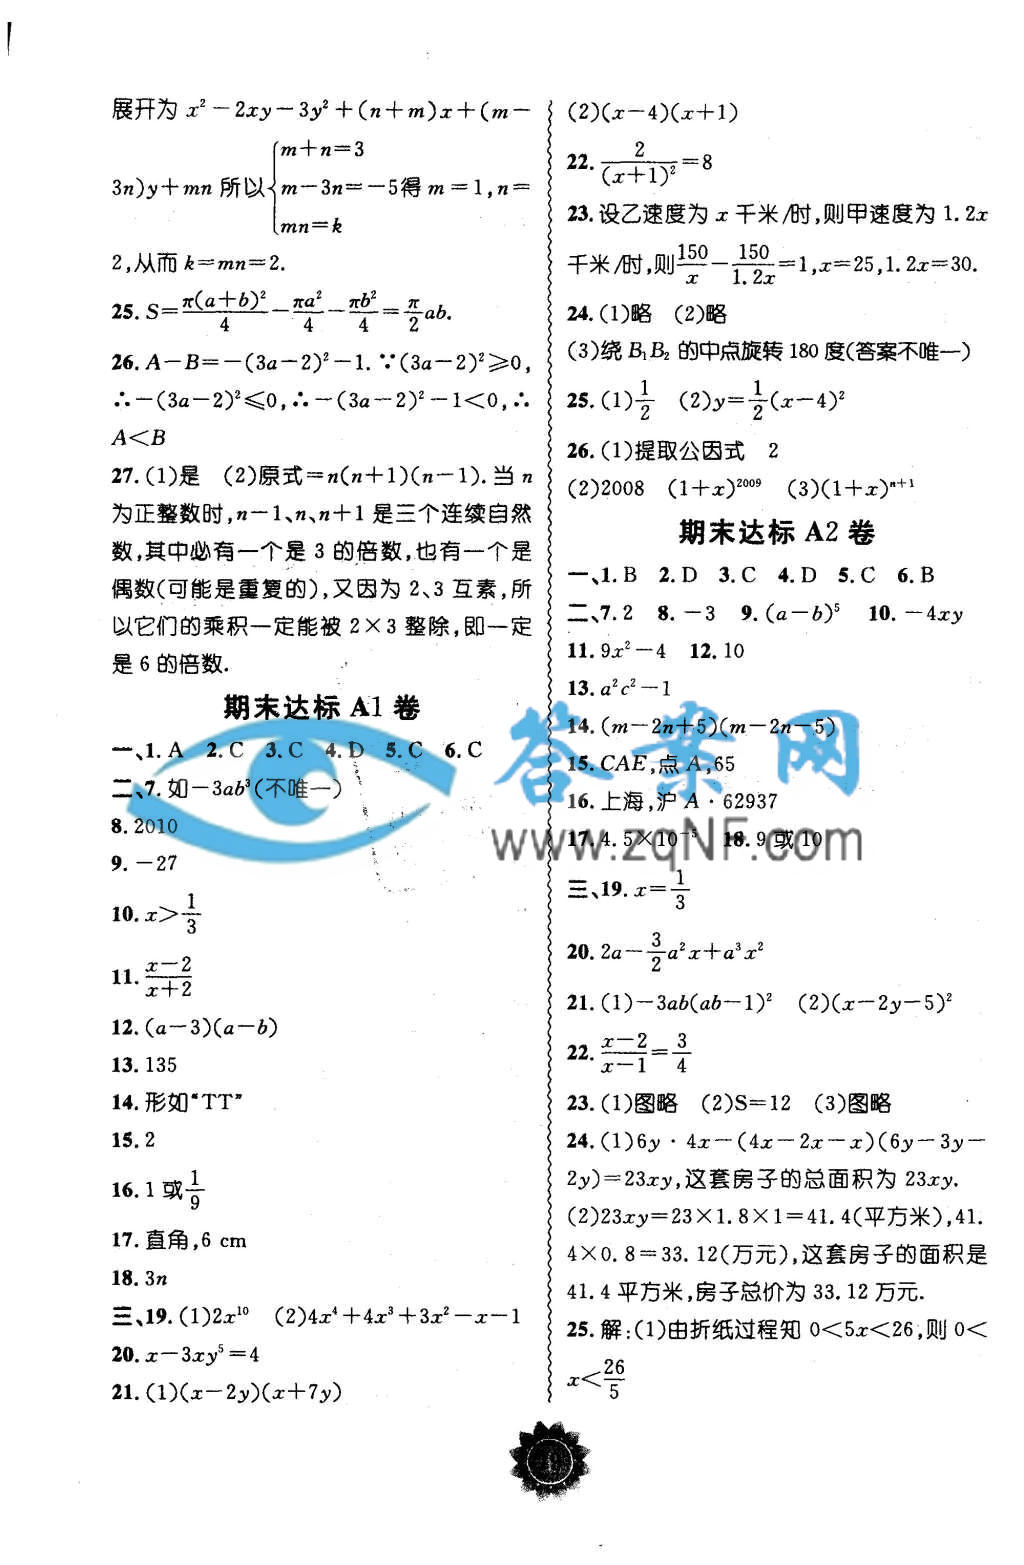 展开为 x²－2xy－3y²＋(n＋m)x＋(m－
3n)y＋mn 所以{m＋n＝3
m－3n＝－5
mn＝k 得 m＝1,n＝
2,从而 k＝mn＝2.
25. S＝π(a＋b)²/4－πa²/4－πb²/4＝π/2 ab.
26. A－B＝－(3a－2)²－1.∵(3a－2)²≥0,
∴－(3a－2)²≤0,∴－(3a－2)²－1＜0,∴
A＜B
27. (1)是 (2)原式＝n(n＋1)(n－1).当 n
为正整数时,n－1、n、n＋1 是三个连续自然
数,其中必有一个是 3 的倍数,也有一个是
偶数(可能是重复的),又因为 2、3 互素,所
以它们的乘积一定能被 2×3 整除,即一定
是 6 的倍数.
期末达标 A1 卷
一、1. A 2. C 3. C 4. D 5. C 6. C
二、7. 如－3ab³(不唯一)
8. 2010
9. －27
10. x＞1/3
11. (x－2)/(x＋2)
12. (a－3)(a－b)
13. 135
14. 形如“TT”
15. 2
16. 1 或 1/9
17. 直角,6 cm
18. 3n
三、19. (1)2x¹⁰ (2)4x⁴＋4x³＋3x²－x－1
20. x－3xy⁵＝4
21. (1)(x－2y)(x＋7y)
(2)(x－4)(x＋1)
22. 2/(x＋1)²＝8
23. 设乙速度为 x 千米/时,则甲速度为 1.2x
千米/时,则150/x－150/1.2x＝1,x＝25,1.2x＝30.
24. (1)略 (2)略
(3)绕 B₁B₂ 的中点旋转 180 度(答案不唯一)
25. (1)1/2 (2)y＝1/2(x－4)²
26. (1)提取公因式 2
(2)2008 (1＋x)²⁰⁰⁹ (3)(1＋x)ⁿ⁺¹
期末达标 A2 卷
一、1. B 2. D 3. C 4. D 5. C 6. B
二、7. 2 8. －3 9. (a－b)⁵ 10. －4xy
11. 9x²－4 12. 10
13. a²c²－1
14. (m－2n＋5)(m－2n－5)
15. CAE,点 A,65
16. 上海,沪 A·62937
17. 4.5×10⁻⁵ 18. 9 或 10
三、19. x＝1/3
20. 2a－3/2 a²x＋a³x²
21. (1)－3ab(ab－1)² (2)(x－2y－5)²
22. (x－2)/(x－1)＝3/4
23. (1)图略 (2)S＝12 (3)图略
24. (1)6y·4x－(4x－2x－x)(6y－3y－
2y)＝23xy,这套房子的总面积为 23xy.
(2)23xy＝23×1.8×1＝41.4(平方米),41.
4×0.8＝33.12(万元),这套房子的面积是
41.4 平方米,房子总价为 33.12 万元.
25. 解:(1)由折纸过程知 0＜5x＜26,则 0＜
x＜26/5
答案网
www.zqNF.com